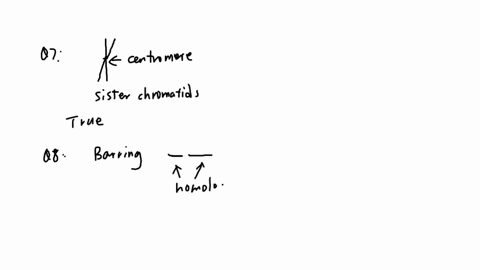 Q7: ← centromere
sister chromatids
True
Q8: Barring
homolo.